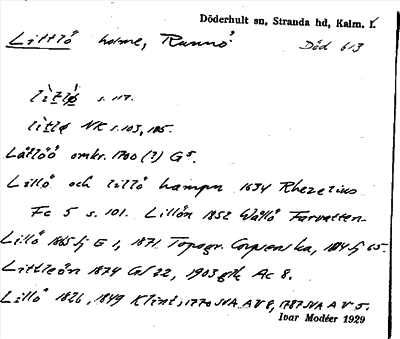 Döderhult sn, Stranda hd, Kalm. l.
Littlö holme, Runnö. Död 613
lìtlø s. 117.
lìtlø NK s. 103, 105.
Låtlöö omkr. 1700 (?) G5.
Lillö och lillö hampn 1634 Rhezelius
Fc 5 s. 101. Lillön 1852 Wållö Farvatten-
Lillö 1865 lj E 1, 1871 Topogr. Corpsenska, 65.
Littleön 1874 GV 22, 1903 gtk Ac 8.
Lillö 1826, 1849 Klint, 1770 SVA A V 8, 1787 SVA A V 5.
Ivar Modéer 1929